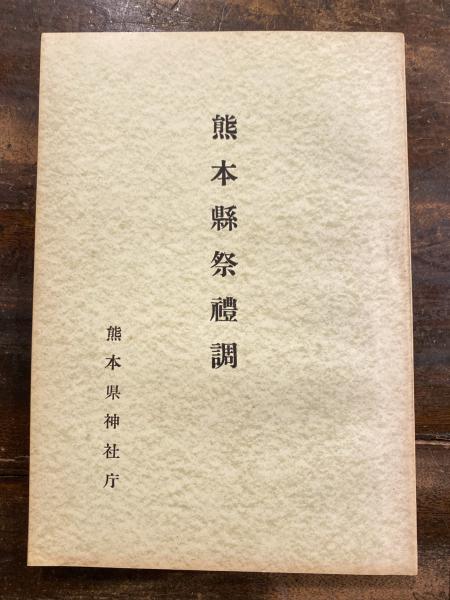 熊本縣祭禮調
熊本県神社庁